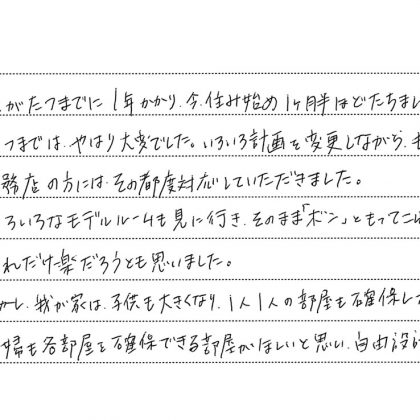 がたつまでに1年かかり、今、住み始め1ヶ月半ほどたちまし
つまでは、やはり大変でした。いろいろ計画を変更しながら、も
務店の方には、その都度対応していただきました。
ろいろなモデルルームも見に行き、そのまま「ボン」ともってこら
れだけ楽だろうとも思いました。
かし、我が家は、子供も大きくなり、1人1人の部屋も確保した
婦も各部屋を確保できる部屋がほしいと思い、自由設計